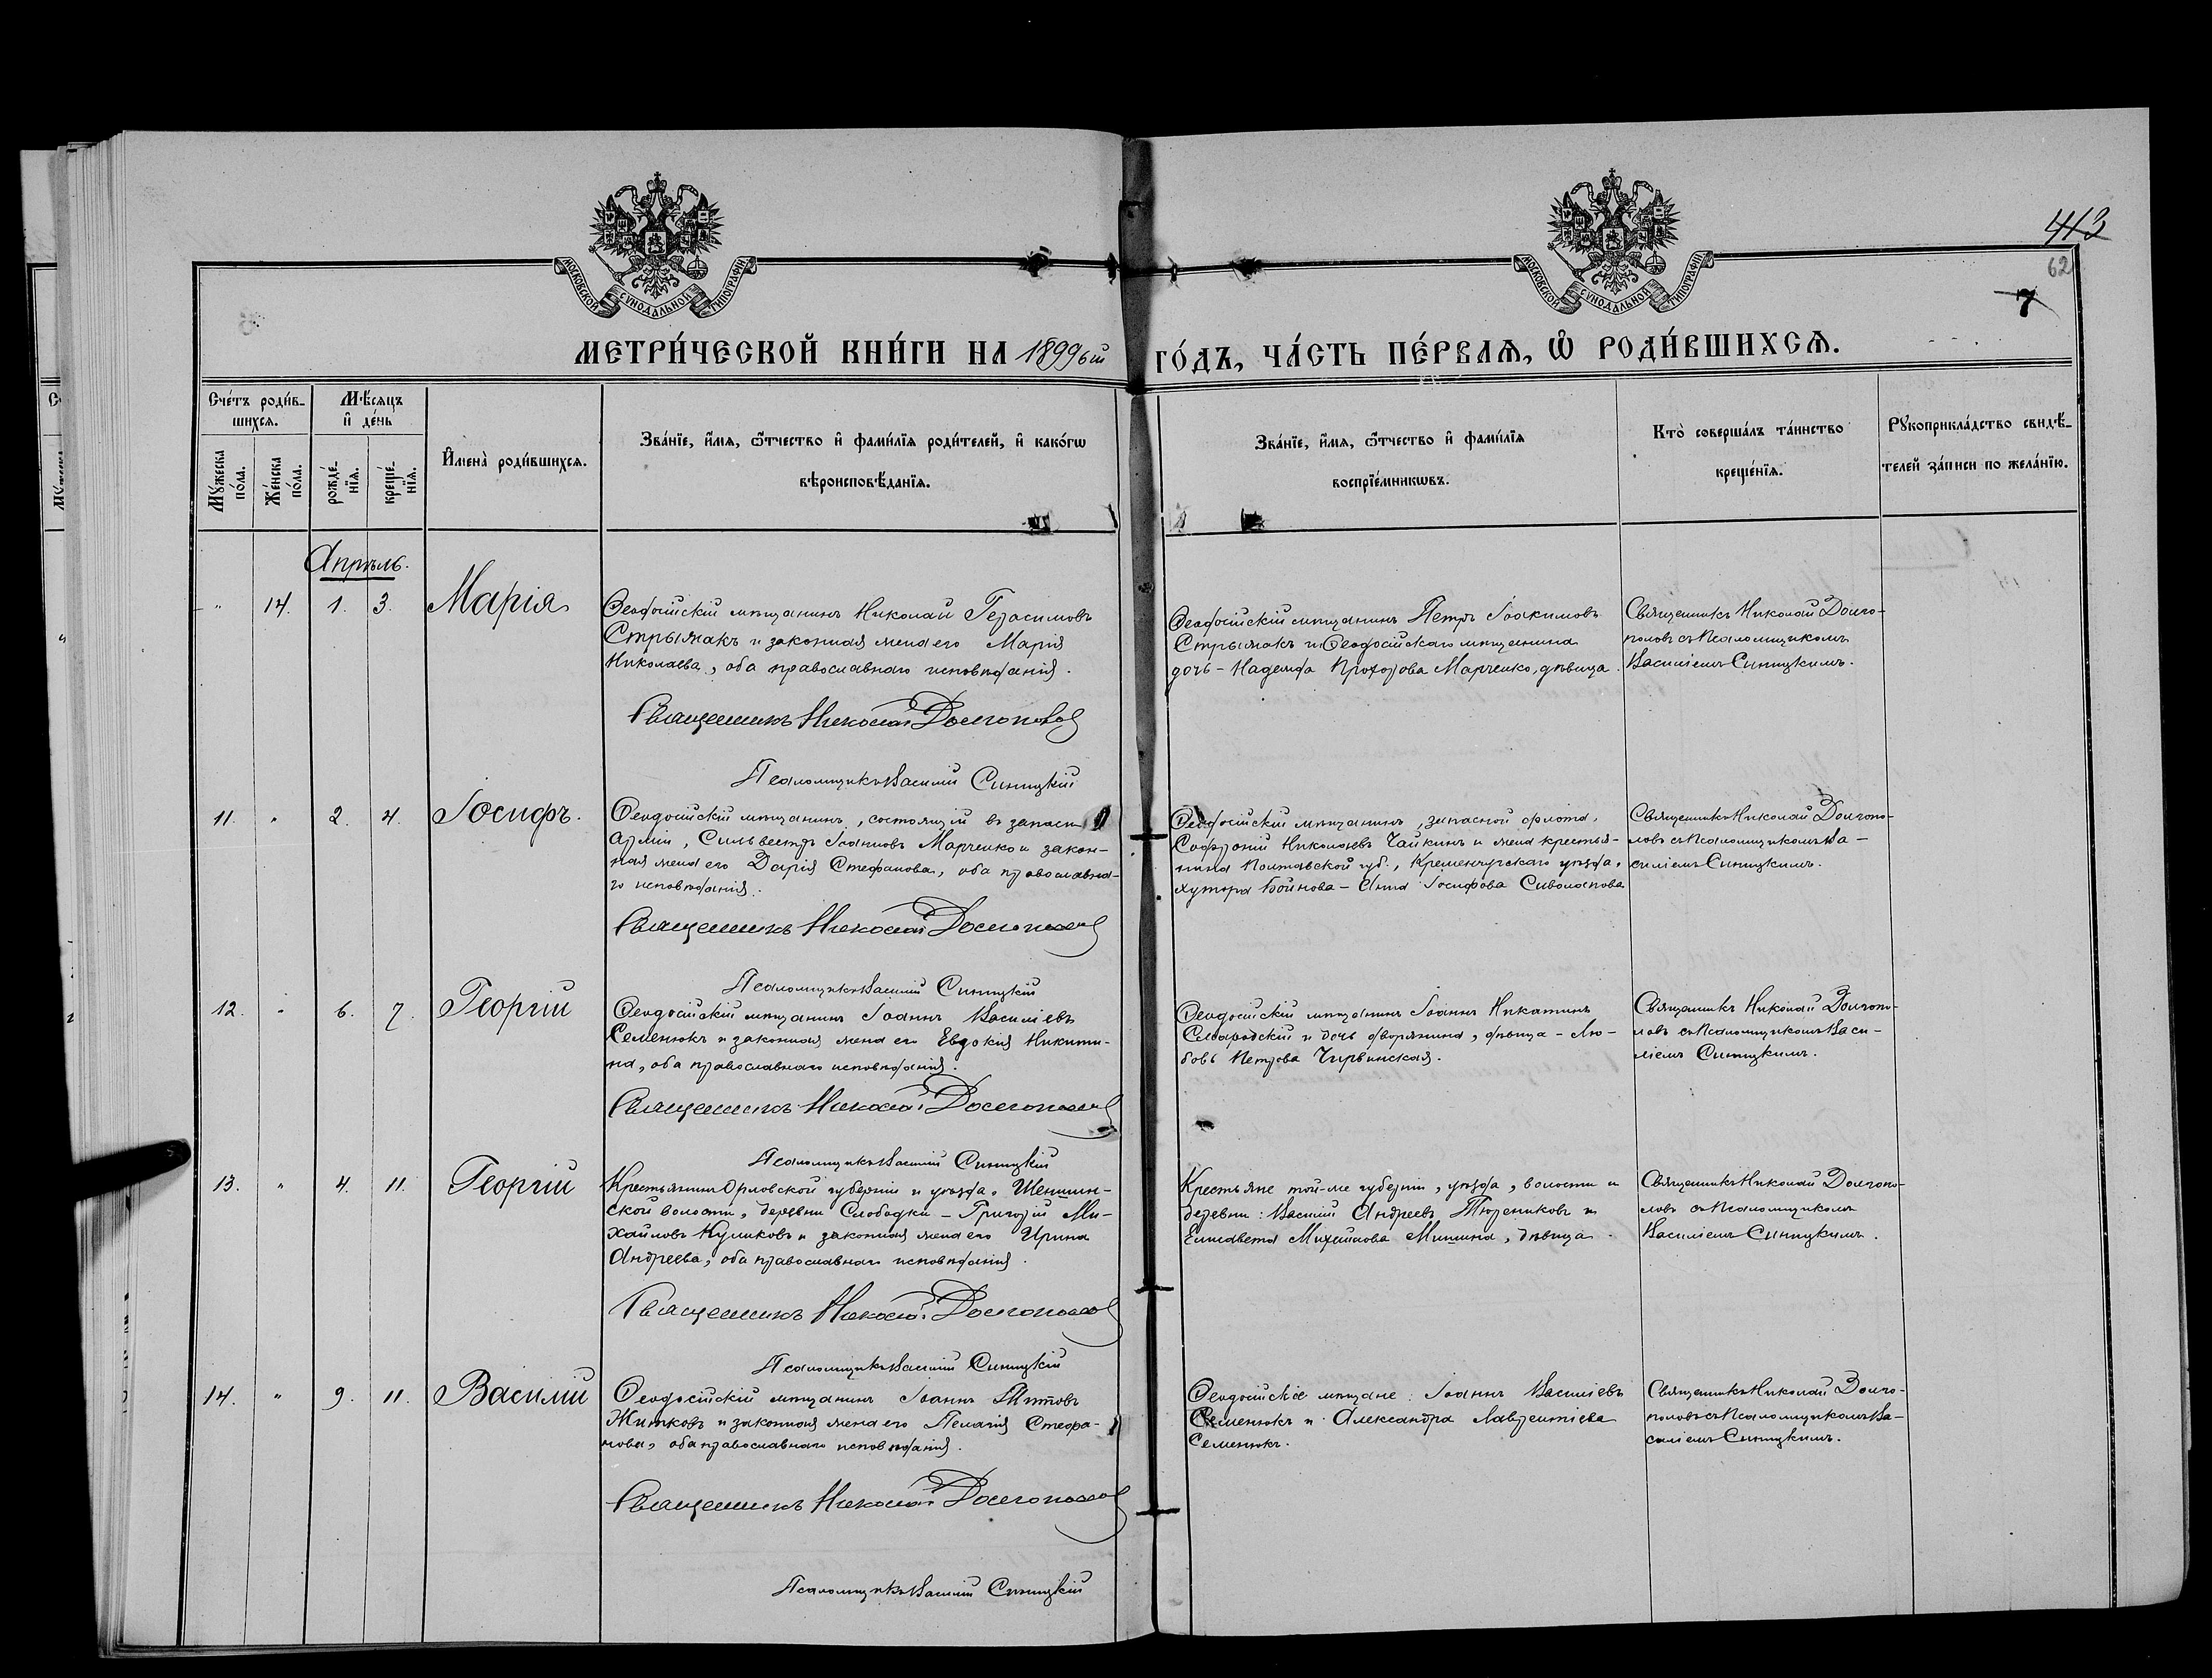 МОСКОВСКОЙ СѴНОДАЛЬНОЙ ТИПОГРАФІИ
МОСКОВСКОЙ СѴНОДАЛЬНОЙ ТИПОГРАФІИ
413
62
7
МЕТРИ́ЧЕСКОЙ КНИ́ГИ НА 1899ый ГО́ДЪ, ЧА́СТЬ ПЕ́РВАѦ, Ѽ РОДИ́ВШИХСѦ.
Сче́тъ роди́в-
шихсѧ.
Мѣ́сяцъ
и҆ де́нь
Мꙋ́жеска
по́ла.
Же́нска
по́ла.
рожде́-
нїѧ.
креще́-
нїѧ.
И҆мена̀ роди́вшихсѧ.
Зва́нїе, и҆́мѧ, ѻ҆́тчество и҆ фами́лїѧ роди́телей, и҆ како́гѡ
вѣроисповѣ́данїѧ.
Зва́нїе, и҆́мѧ, ѻ҆́тчество и҆ фами́лїѧ
воспрїе́мникѡвъ.
Кто̀ соверша́лъ та́инство
креще́нїѧ.
Рꙋкоприкла́дство свидѣ́-
телей за́писи по жела́нїю.
Апрѣль.
" 14. 1. 3. Марія
Ѳеодосійскій мѣщанинъ Николай Герасимовъ
Стрыжакъ и законная жена его Марія
Николаева, оба православнаго исповѣданія.
Священникъ Николай Долгополов
Псаломщикъ Василій Синицкій
Ѳеодосійскій мѣщанинъ Петръ Іоакимовъ
Стрыжакъ и Ѳеодосійскаго мѣщанина
дочь - Надежда Прохорова Марченко, дѣвица.
Священникъ Николай Долго-
половъ съ Псаломщикомъ
Василіемъ Синицкимъ.
11. " 2. 4. Іосифъ.
Ѳеодосійскій мѣщанинъ, состоящій въ запасѣ
арміи, Сильвестръ Іоанновъ Марченко и закон-
ная жена его Дарія Стефанова, оба православна-
го исповѣданія.
Священникъ Николай Долгополов
Псаломщикъ Василій Синицкій
Ѳеодосійскій мѣщанинъ, запасной флота,
Софроній Николаевъ Чайкинъ и жена крестья-
нина Полтавской губ., Кременчугскаго уѣзда,
хутора Бойнова - Анна Іосифова Сиволапова
Священникъ Николай Долгопо-
ловъ съ Псаломщикомъ Ва-
силіемъ Синицкимъ.
12. " 6. 7. Георгій
Ѳеодосійскій мѣщанинъ Іоаннъ Василіевъ
Семенюкъ и законная жена его Евдокія Никити-
на, оба православнаго исповѣданія.
Священникъ Николай Долгополов
Псаломщикъ Василій Синицкій
Ѳеодосійскій мѣщанинъ Іоаннъ Никитинъ
и дочь дворянина, дѣвица - Лю-
бовь Петрова Чирвинская.
Священникъ Николай Долгопо-
ловъ съ Псаломщикомъ Васи-
ліемъ Синицкимъ.
13. " 4. 11. Георгій
Крестьянинъ Орловской губерніи и уѣзда, Шеншин-
ской волости, деревни Слободки - Григорій Ми-
хайловъ Куликовъ и законная жена его Ирина
Андреева, оба православнаго исповѣданія.
Священникъ Николай Долгополов
Псаломщикъ Василій Синицкій
Крестьяне той-же губерніи, уѣзда, волости и
деревни: Василій Андреевъ Тюрениковъ и
Елисавета Михайлова Мишина, дѣвица.
Священникъ Николай Долгопо-
ловъ съ Псаломщикомъ
Василіемъ Синицкимъ.
14. " 9. 11. Василій
Ѳеодосійскій мѣщанинъ Іоаннъ Титовъ
Житковъ и законная жена его Пелагія Стефа-
нова, оба православнаго исповѣданія.
Священникъ Николай Долгополов
Псаломщикъ Василій Синицкій
Ѳеодосійскіе мѣщане: Іоаннъ Василіевъ
Семенюкъ и Александра Лаврентіева
Семенюкъ.
Священникъ Николай Долго-
половъ съ Псаломщикомъ Ва-
силіемъ Синицкимъ.